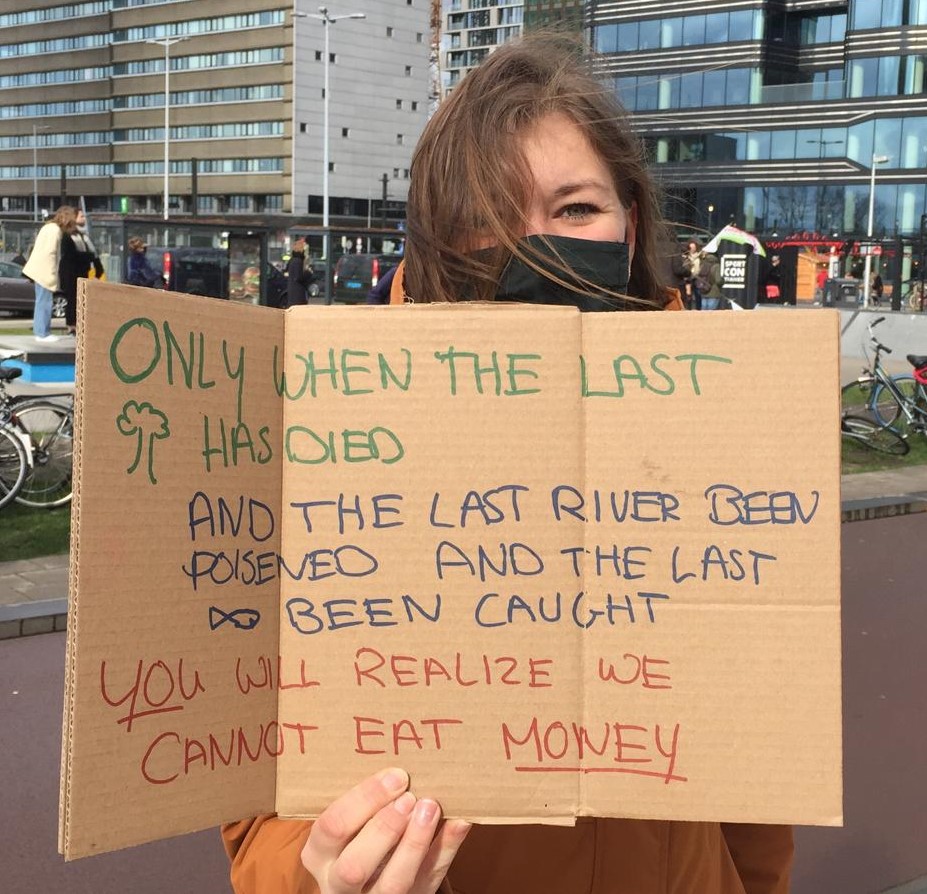 ONLY WHEN THE LAST
HAS DIED
AND THE LAST RIVER BEEN
POISENED AND THE LAST
BEEN CAUGHT
YOU WILL REALIZE WE
CANNOT EAT MONEY
SPORT
CON